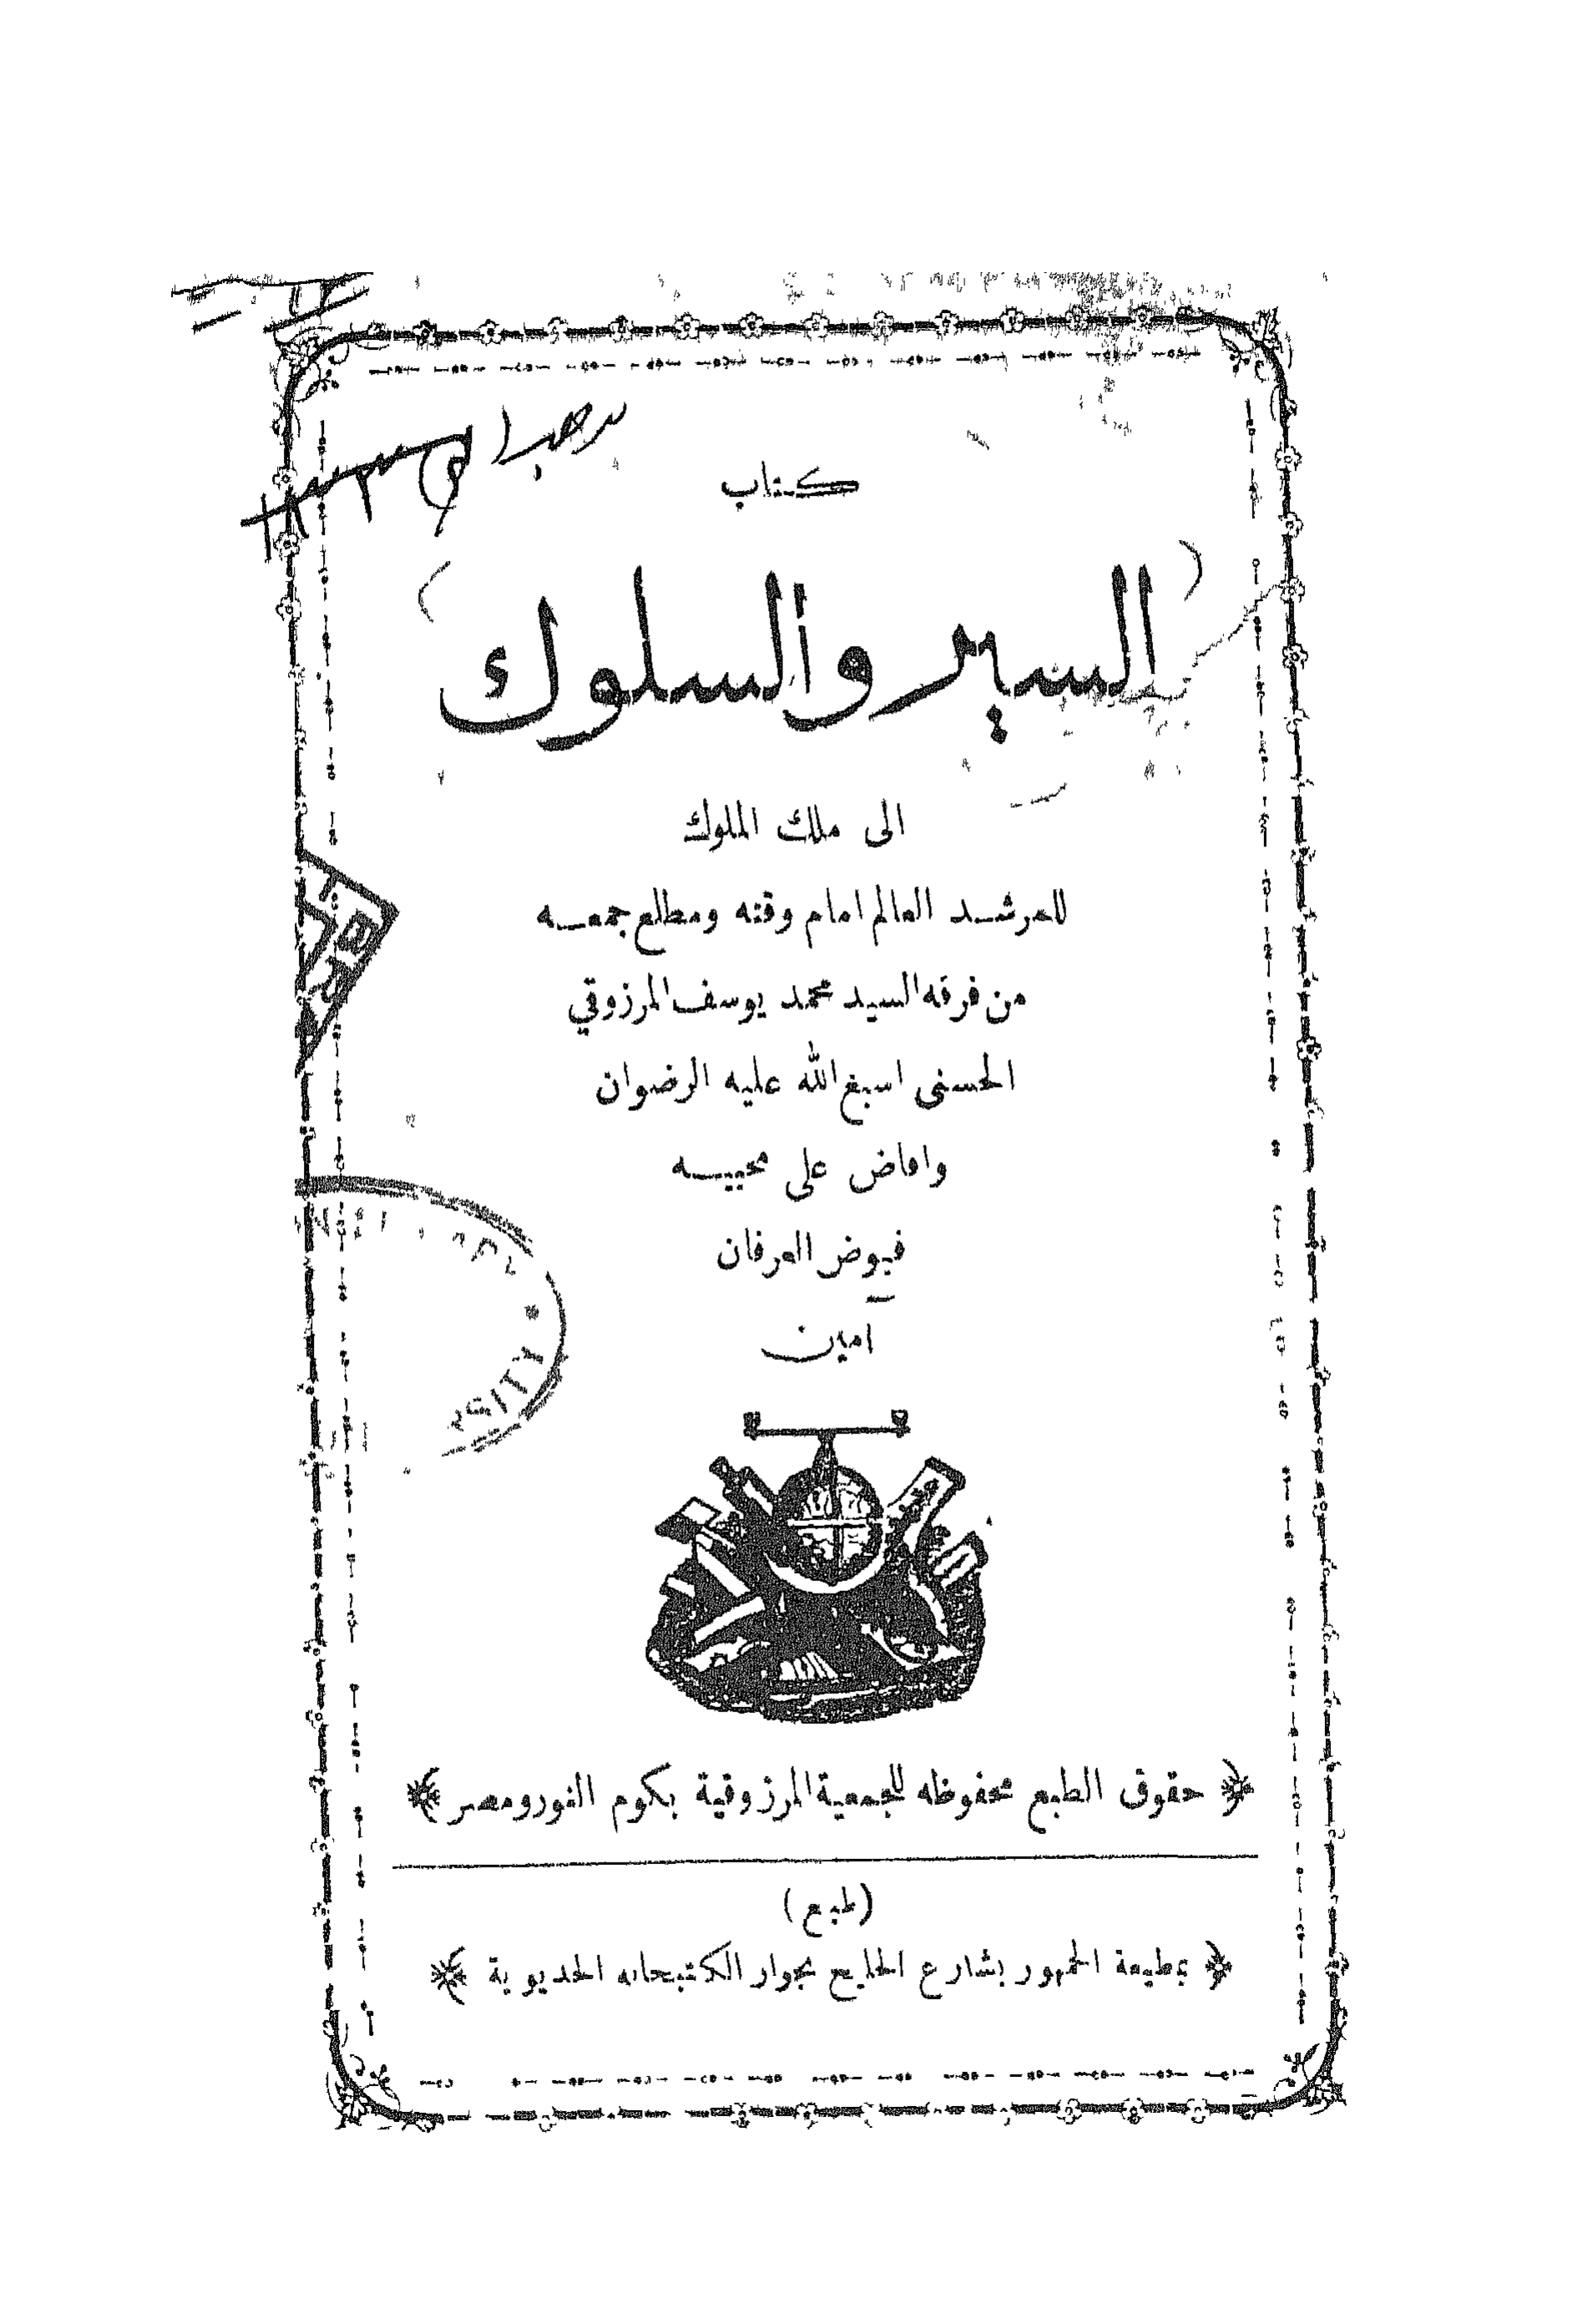 كتاب
(السير والسلوك)
الى ملك الملوك
للمرشد العالم امام وقته ومطلع جمعه
من فرقه السيد محمد يوسف المرزوقي
الحسنى اسبغ الله عليه الرضوان
وافاض على محبيه
فيوض العرفان
آمين
﴿ حقوق الطبع محفوظه للجمعية المرزوقية بكوم النور ومصر ﴾
(طبع)
﴿ بمطبعة الجمهور بشارع الخليج بجوار الكتبخانه الخديوية ﴾